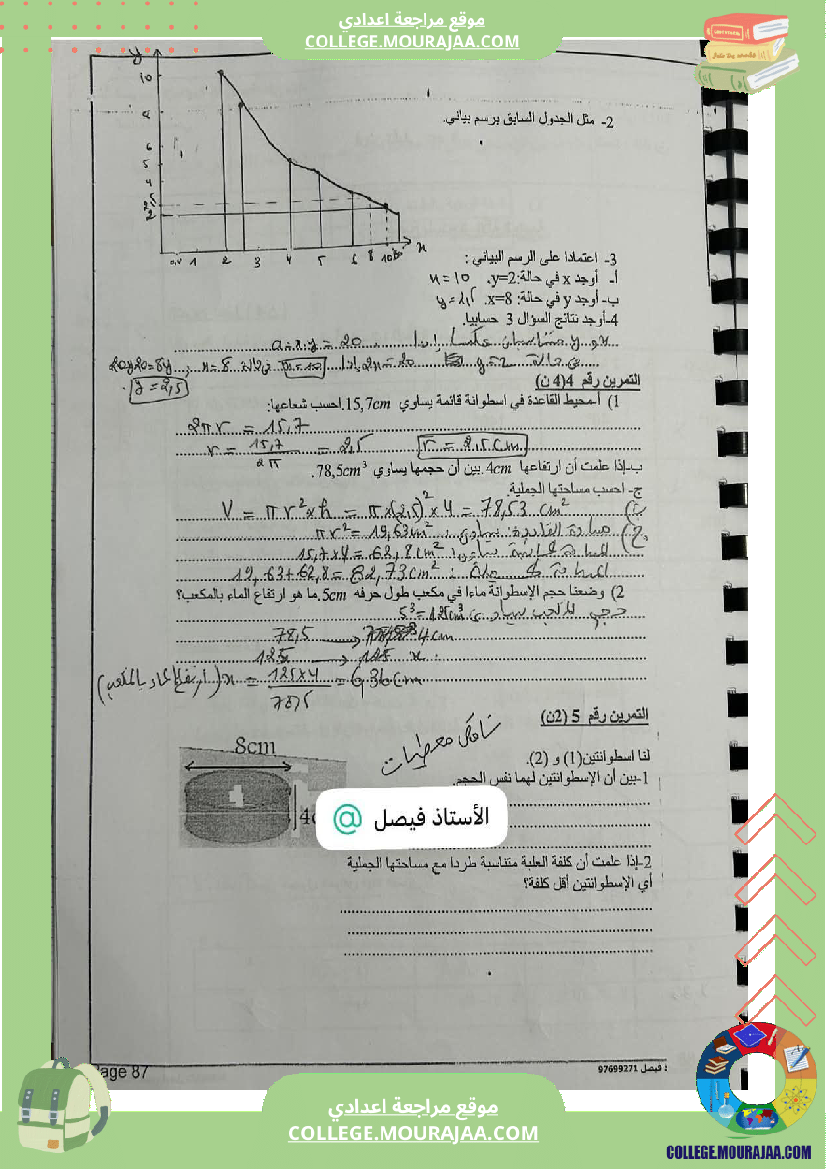 موقع مراجعة اعدادي
COLLEGE.MOURAJAA.COM
y
10
8
6
5
4
2
x
1 2 3 4 5 6 8 10
2- مثل الجدول السابق برسم بياني.
3- اعتمادا على الرسم البياني :
أ- أوجد x في حالة:y=2. x = 10
ب- أوجد y في حالة: x=8. y = 2,5
4-أوجد نتائج السؤال 3 حسابيا.
x و y متناسبان عكسا إذا a = x.y = 20
في حالة y = 2 إذا 2x = 20 x = 10 في حالة x = 8 20 = 8y
y = 2,5
التمرين رقم 4(4 ن)
1) أ-محيط القاعدة في اسطوانة قائمة يساوي 15,7cm.احسب شعاعها:
2πr = 15,7
r = 15,7 / 2π = 2,5 r = 2,5 cm
ب-إذا علمت أن ارتفاعها 4cm.بين أن حجمها يساوي 78,5cm³.
ج- احسب مساحتها الجملية.
ب) V = πr²×h = π×(2,5)²×4 = 78,53 cm²
ج) مساحة القاعدة تساوي: πr² = 19,63cm²
المساحة الجانبية تساوي: 15,7×4 = 62,8cm²
المساحة الجملية: 19,63+62,8 = 82,73cm²
2) وضعنا حجم الإسطوانة ماءا في مكعب طول حرفه 5cm.ما هو ارتفاع الماء بالمكعب؟
حجم المكعب يساوي 5³ = 125cm³
78,5 → 4cm
125 → x
(ارتفاع الماء بالمكعب) x = 125×4 / 78,5 = 6,36cm
التمرين رقم 5 (2ن)
ناقص معطيات
لنا اسطوانتين(1) و (2).
1-بين أن الإسطوانتين لهما نفس الحجم.
8cm
الأستاذ فيصل @
2-إذا علمت أن كلفة العلبة متناسبة طردا مع مساحتها الجملية
أي الإسطوانتين أقل كلفة؟
Page 87
فيصل 97699271
موقع مراجعة اعدادي
COLLEGE.MOURAJAA.COM
COLLEGE.MOURAJAA.COM